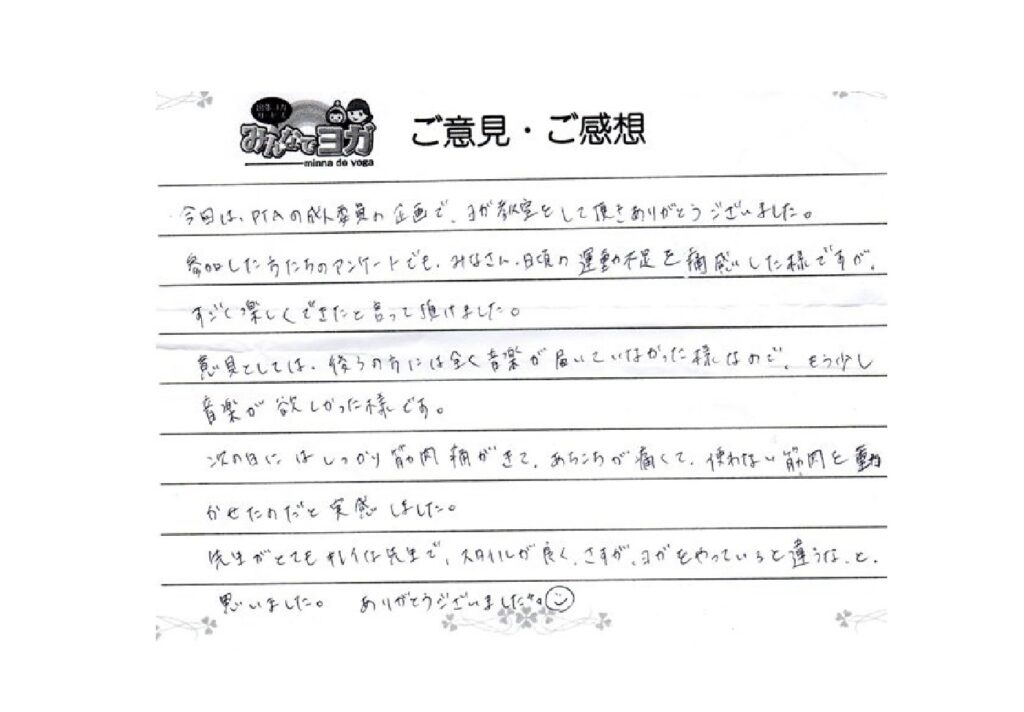 出張ヨガ
みんなでヨガ
minna de yoga
ご意見・ご感想
今回は、PTAの成人委員の企画で、ヨガ教室をして頂きありがとうございました。
参加した方たちのアンケートでも、みなさん、日頃の運動不足を痛感した様ですが、
すごく楽しくできたと言って頂けました。
意見としては、後ろの方には全く音楽が届いていなかった様なので、もう少し
音楽が欲しかった様です。
次の日にはしっかり筋肉痛がきて、あちこちが痛くて、使わない筋肉を動
かせたのだと実感しました。
先生がとてもキレイな先生で、スタイルが良く、さすが、ヨガをやっていると違うな、と、
思いました。 ありがとうございました。